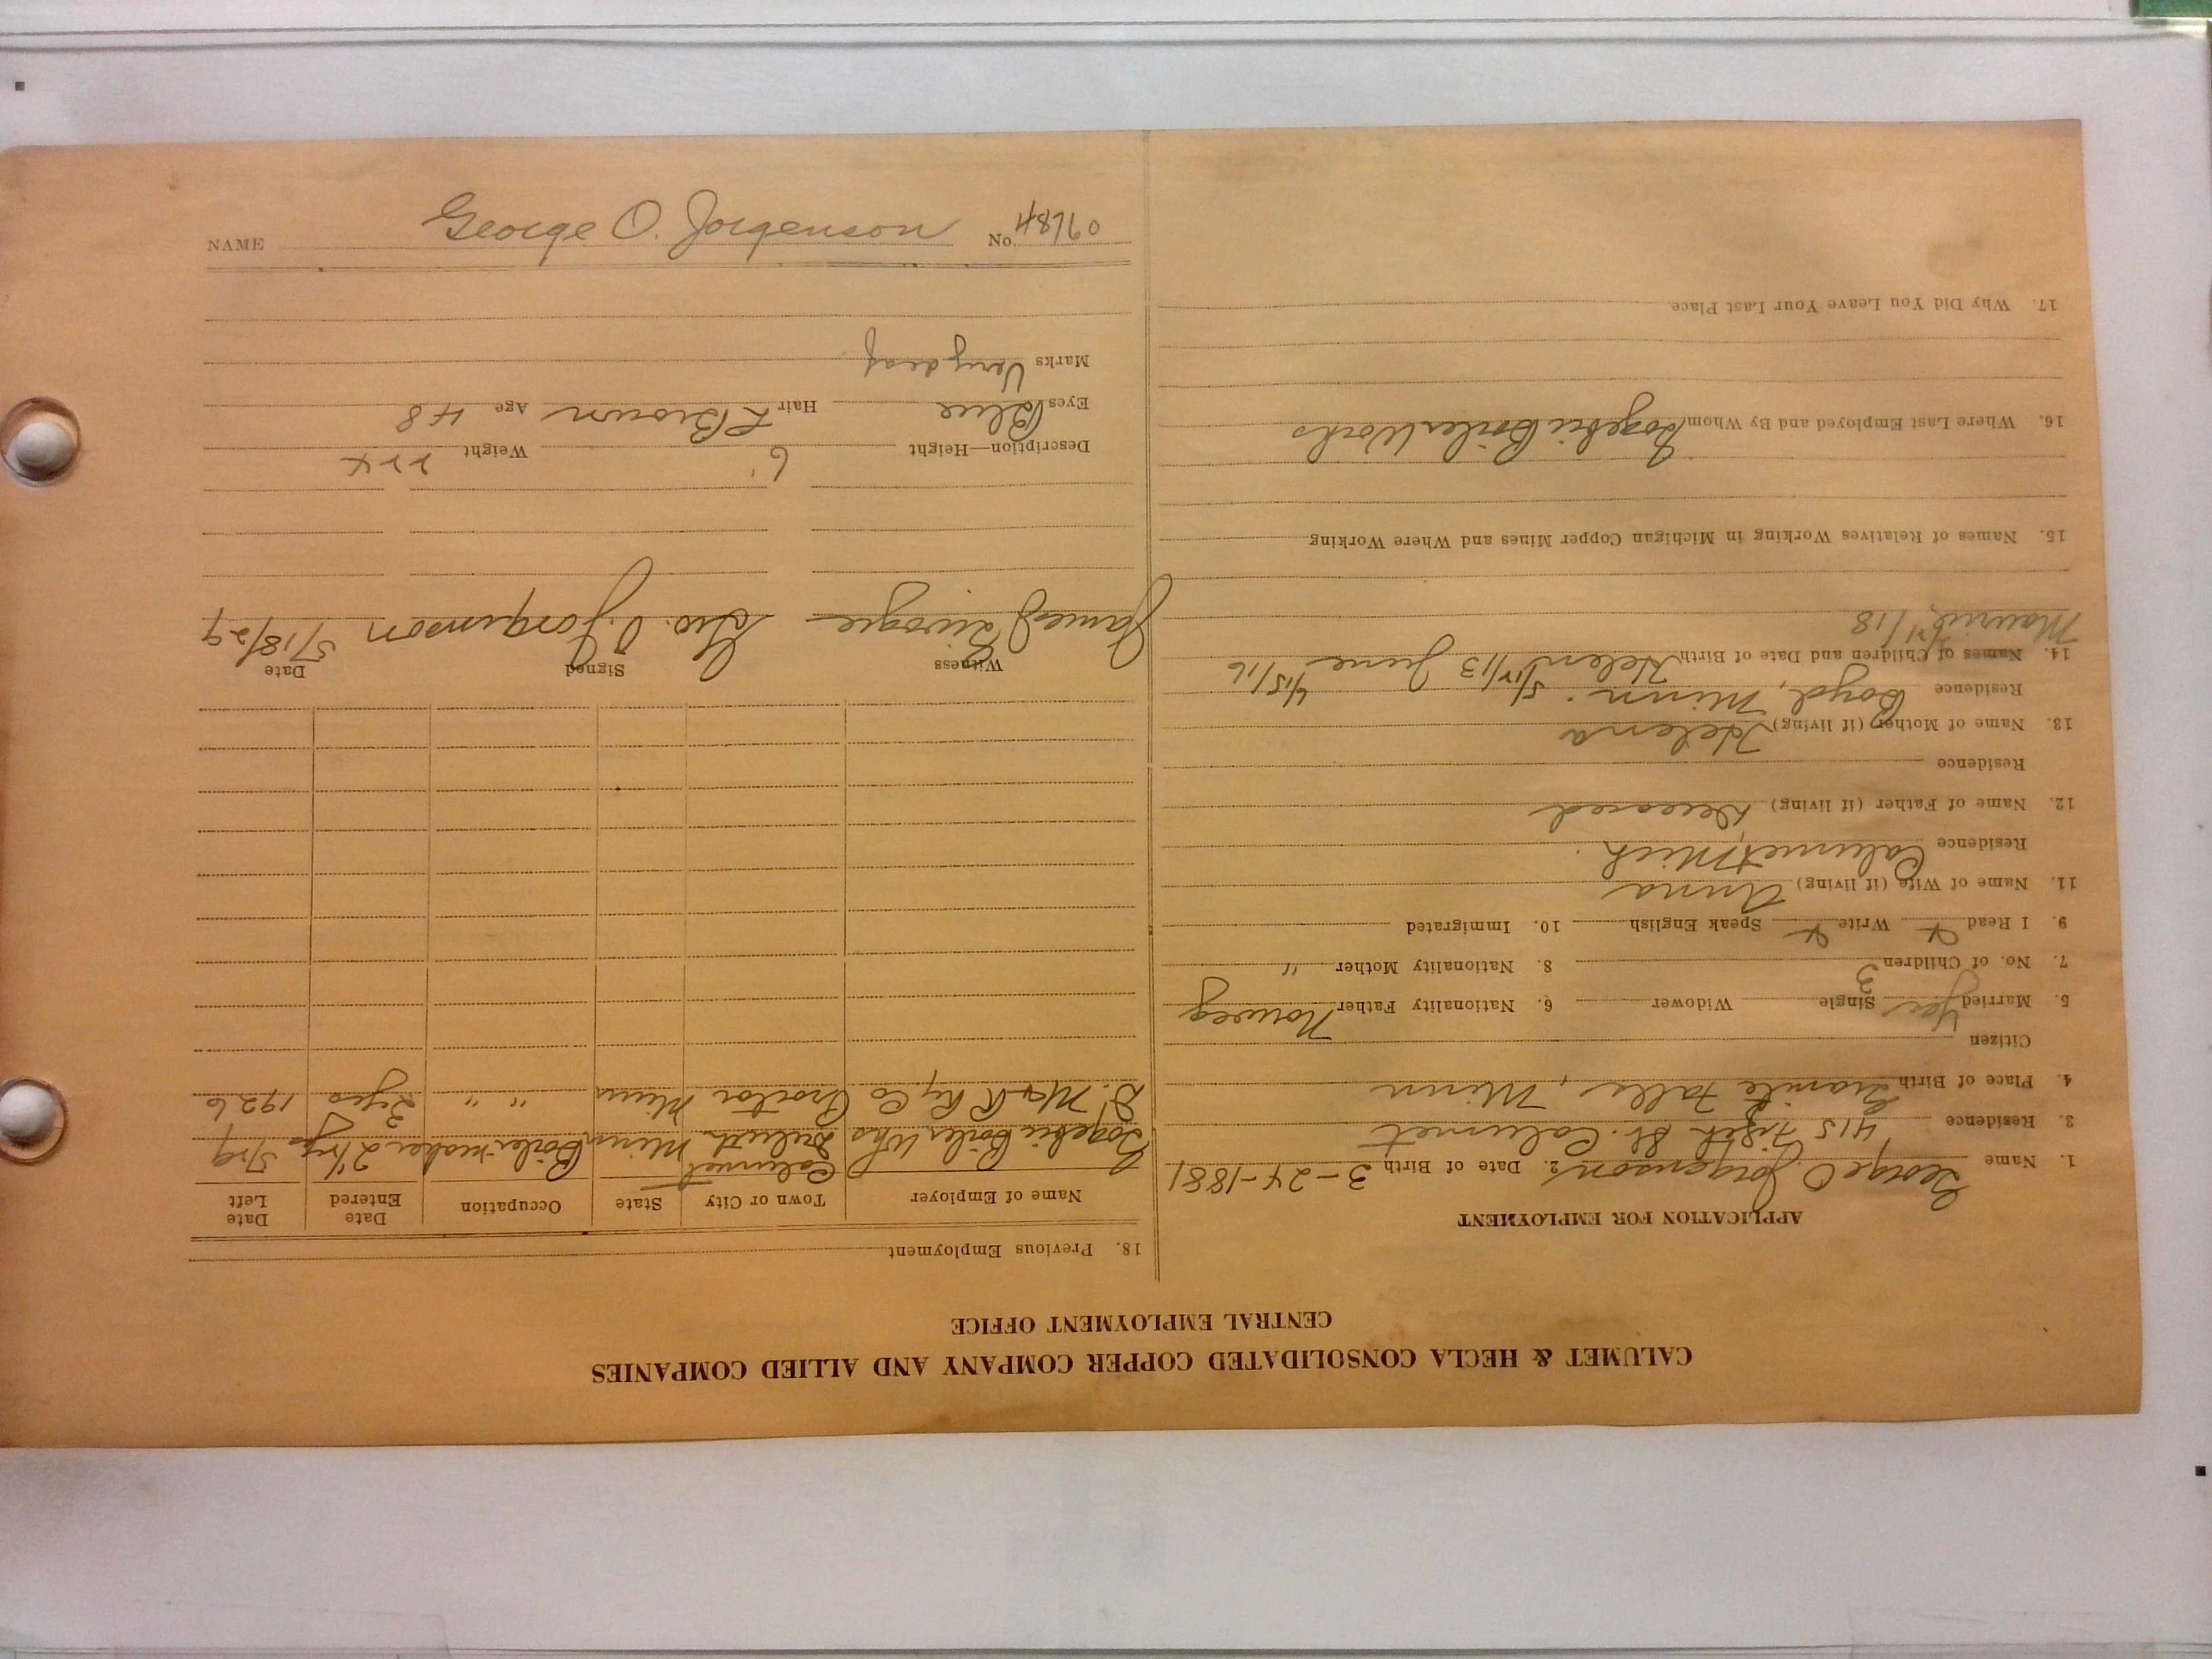 CALUMET & HECLA CONSOLIDATED COPPER COMPANY AND ALLIED COMPANIES
CENTRAL EMPLOYMENT OFFICE
APPLICATION FOR EMPLOYMENT
1. Name George O. Jorgenson 2. Date of Birth 3-24-1881
3. Residence 415 Fifth St. Calumet
4. Place of Birth Granite Falls, Minn
Citizen
5. Married Yes Single Widower 6. Nationality Father Norweg
7. No. of Children 3 8. Nationality Mother "
9. I Read Write Speak English 10. Immigrated
11. Name of Wife (if living) Anna
Residence Calumet, Mich.
12. Name of Father (if living) Deceased
Residence
13. Name of Mother (if living) Helena
Residence Boyd, Minn.
14. Names of Children and Date of Birth Helen June 4/15/16
18
15. Names of Relatives Working in Michigan Copper Mines and Where Working
16. Where Last Employed and By Whom Gogebic Boiler Works
17. Why Did You Leave Your Last Place
18. Previous Employment
Name of Employer Town or City State Occupation Date Entered Date Left
Calumet
Gogebic Boiler Wks Duluth Minn Boilermaker 2 1/2 yrs 5/29
D. M & R Ry Co Proctor Minn " " 2 yrs 1926
Witness Signed Date
James Geo. O. Jorgenson 5/18/29
Description—Height 6' Weight 224
Eyes Blue Hair L Brown Age 48
Marks Very deaf
NAME George O. Jorgenson No.